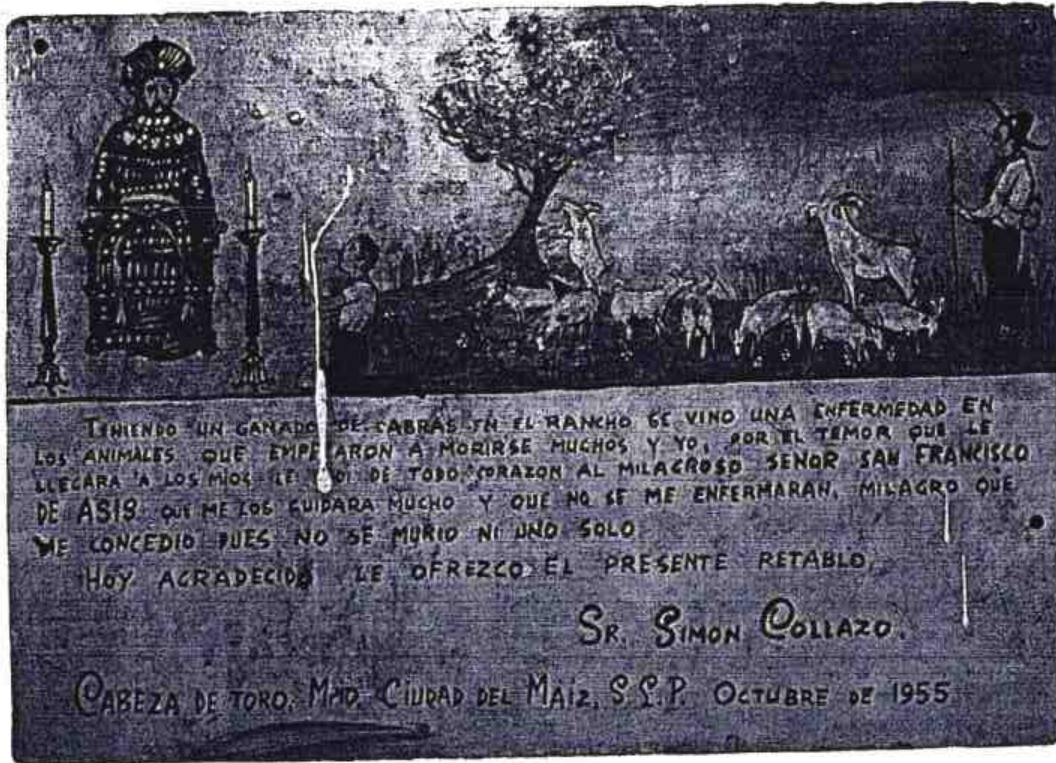 TENIENDO UN GANADO DE CABRAS EN EL RANCHO SE VINO UNA ENFERMEDAD EN
LOS ANIMALES QUE EMPEZARON A MORIRSE MUCHOS Y YO, POR EL TEMOR QUE LE
LLEGARA A LOS MIOS LE PEDI DE TODO CORAZON AL MILAGROSO SEÑOR SAN FRANCISCO
DE ASIS QUE ME LOS CUIDARA MUCHO Y QUE NO SE ME ENFERMARAN, MILAGRO QUE
ME CONCEDIO PUES NO SE MURIO NI UNO SOLO
HOY AGRADECIDO LE OFREZCO EL PRESENTE RETABLO.
SR. SIMON COLLAZO.
CABEZA DE TORO. MPIO. CIUDAD DEL MAIZ, S.L.P. OCTUBRE DE 1955